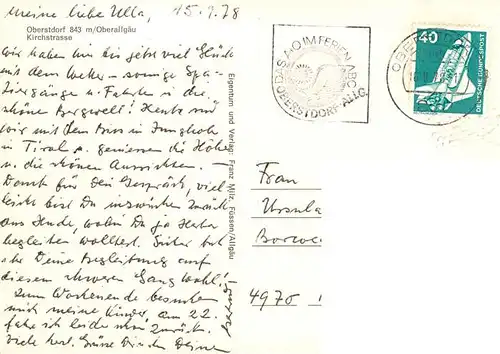 meine liebe Ulla, 15.9.78
Oberstdorf 843 m/Oberallgäu
Kirchstrasse
wir haben hier bis jetzt viel Glück
mit dem Wetter - sonnige Spa-
ziergänge u. Fahrten i. die
schöne Bergwelt! Heute sind
wir mit dem Bus in Jungholz
in Tirol u. geniessen die Höhe
u. die schönen Aussichten.
Dank für Dein Gespräch, viel-
leicht bist Du inzwischen zurück
aus, wohin Du ja
begleiten wolltest. Sicher tut
Deine Begleitung auf
diesem schweren Gang wohl!
Zum Wochenende besuchen
mich meine Kinder, am 22.
fahre ich leider schon zurück.
viele herzl. Grüsse Dir Deine
Eigentum und Verlag: Franz Milz, Füssen/Allgäu
DAS A+O IM FERIEN-ABC
OBERSTDORF ALLG.
OBERSTDORF
40
DEUTSCHE BUNDESPOST
Frau
Ursula
4970